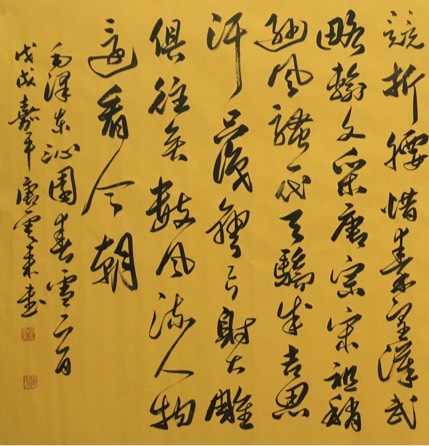 競折腰惜秦皇漢武
略輸文采唐宗宋祖稍
遜風騷一代天驕成吉思
汗只識彎弓射大雕
俱往矣數風流人物
還看今朝
毛澤東沁園春雪一首
戊戌嘉平唐雲來書